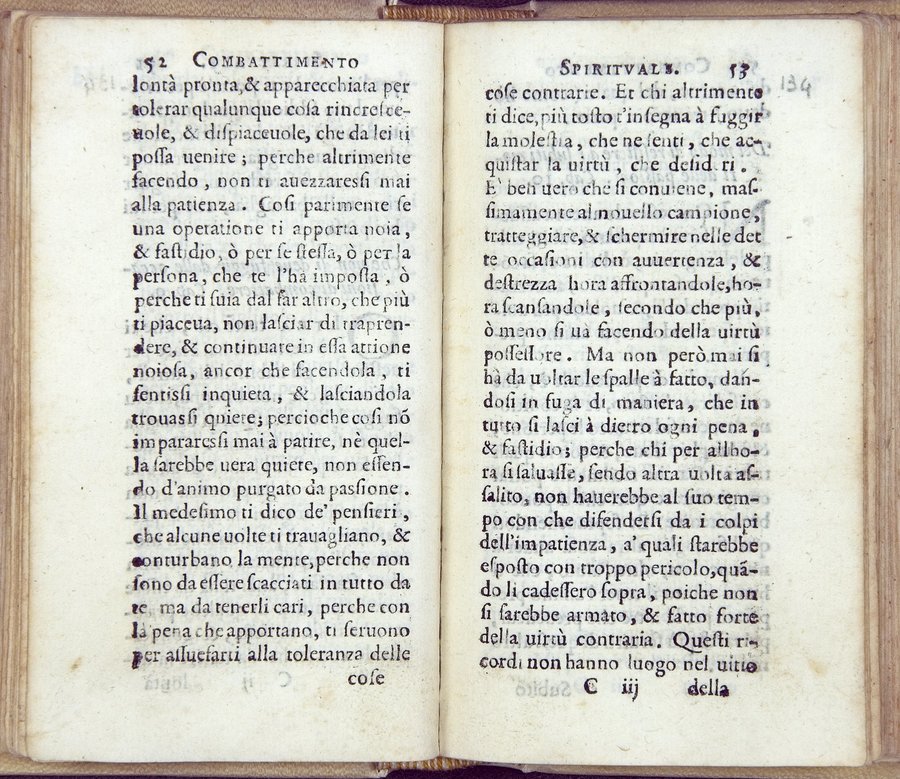 52 COMBATTIMENTO
lontà pronta, & apparecchiata per
tolerar qualunque cosa rincresce-
uole, & dispiaceuole, che da lei ti
possa uenire; perche altrimente
facendo, non ti auezzaressi mai
alla patienza. Cosi parimente se
una operatione ti apporta noia,
& fastidio, ò per se stessa, ò per la
persona, che te l'hà imposta, ò
perche ti suia dal far altro, che più
ti piaceua, non lasciar di trapren-
dere, & continuare in essa attione
noiosa, ancor che facendola, ti
sentissi inquieta, & lasciandola
trouassi quiete; percioche cosi nõ
impararessi mai à patire, nè quel-
la sarebbe uera quiete, non essen-
do d'animo purgato da passione.
Il medesimo ti dico de' pensieri,
che alcune uolte ti trauagliano, &
conturbano la mente, perche non
sono da essere scacciati in tutto da
te, ma da tenerli cari, perche con
la pena che apportano, ti seruono
per assuefarti alla toleranza delle
cose
SPIRITVALE. 53
134
cose contrarie. Et chi altrimento
ti dice, più tosto t'insegna à fuggir
la molestia, che ne senti, che ac-
quistar la uirtù, che desideri.
E' ben uero che si conuiene, mas-
simamente al nouello campione,
tratteggiare, & schermire nelle det
te occasioni con auuertenza, &
destrezza hora affrontandole, ho-
ra scansandole, secondo che più,
ò meno si ua facendo della uirtù
possessore. Ma non però mai si
hà da uoltar le spalle à fatto, dan-
dosi in fuga di maniera, che in
tutto si lasci à dietro ogni pena,
& fastidio; perche chi per allho-
ra si saluasse, sendo altra uolta as-
salito, non hauerebbe al suo tem-
po con che difendersi da i colpi
dell'impatienza, a' quali starebbe
esposto con troppo pericolo, quã-
do li cadessero sopra, poiche non
si sarebbe armato, & fatto forte
della uirtù contraria. Questi ri-
cordi non hanno luogo nel uitio
C iij della